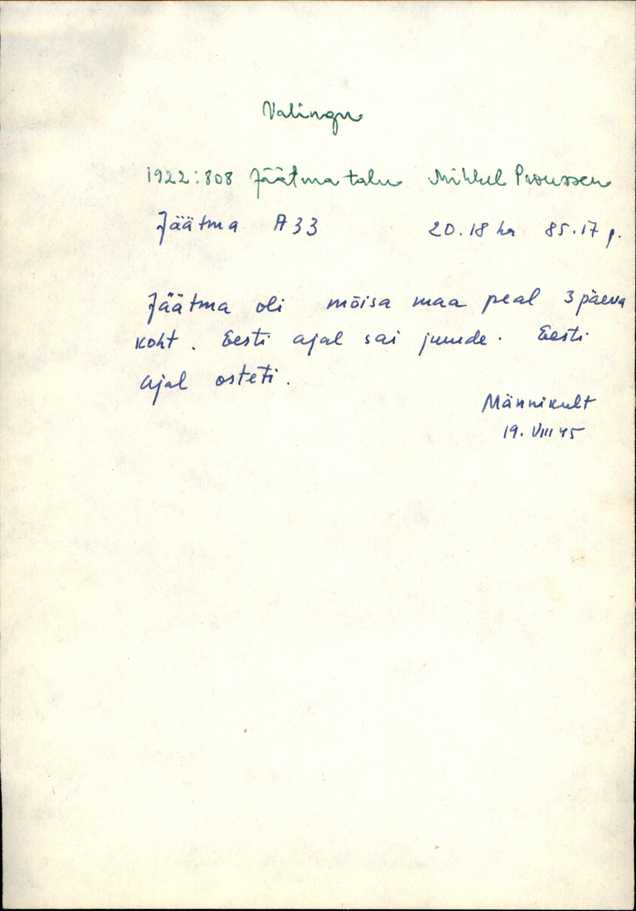 Valingu
1922:808 Jäätma talu Mihkel Proussen
Jäätma A33 20.18 ha 85.17 p.
Jäätma oli mõisa maa peal 3 päeva
koht. Eesti ajal sai juude. Eesti
ajal osteti.
Männikult
19. VIII 45